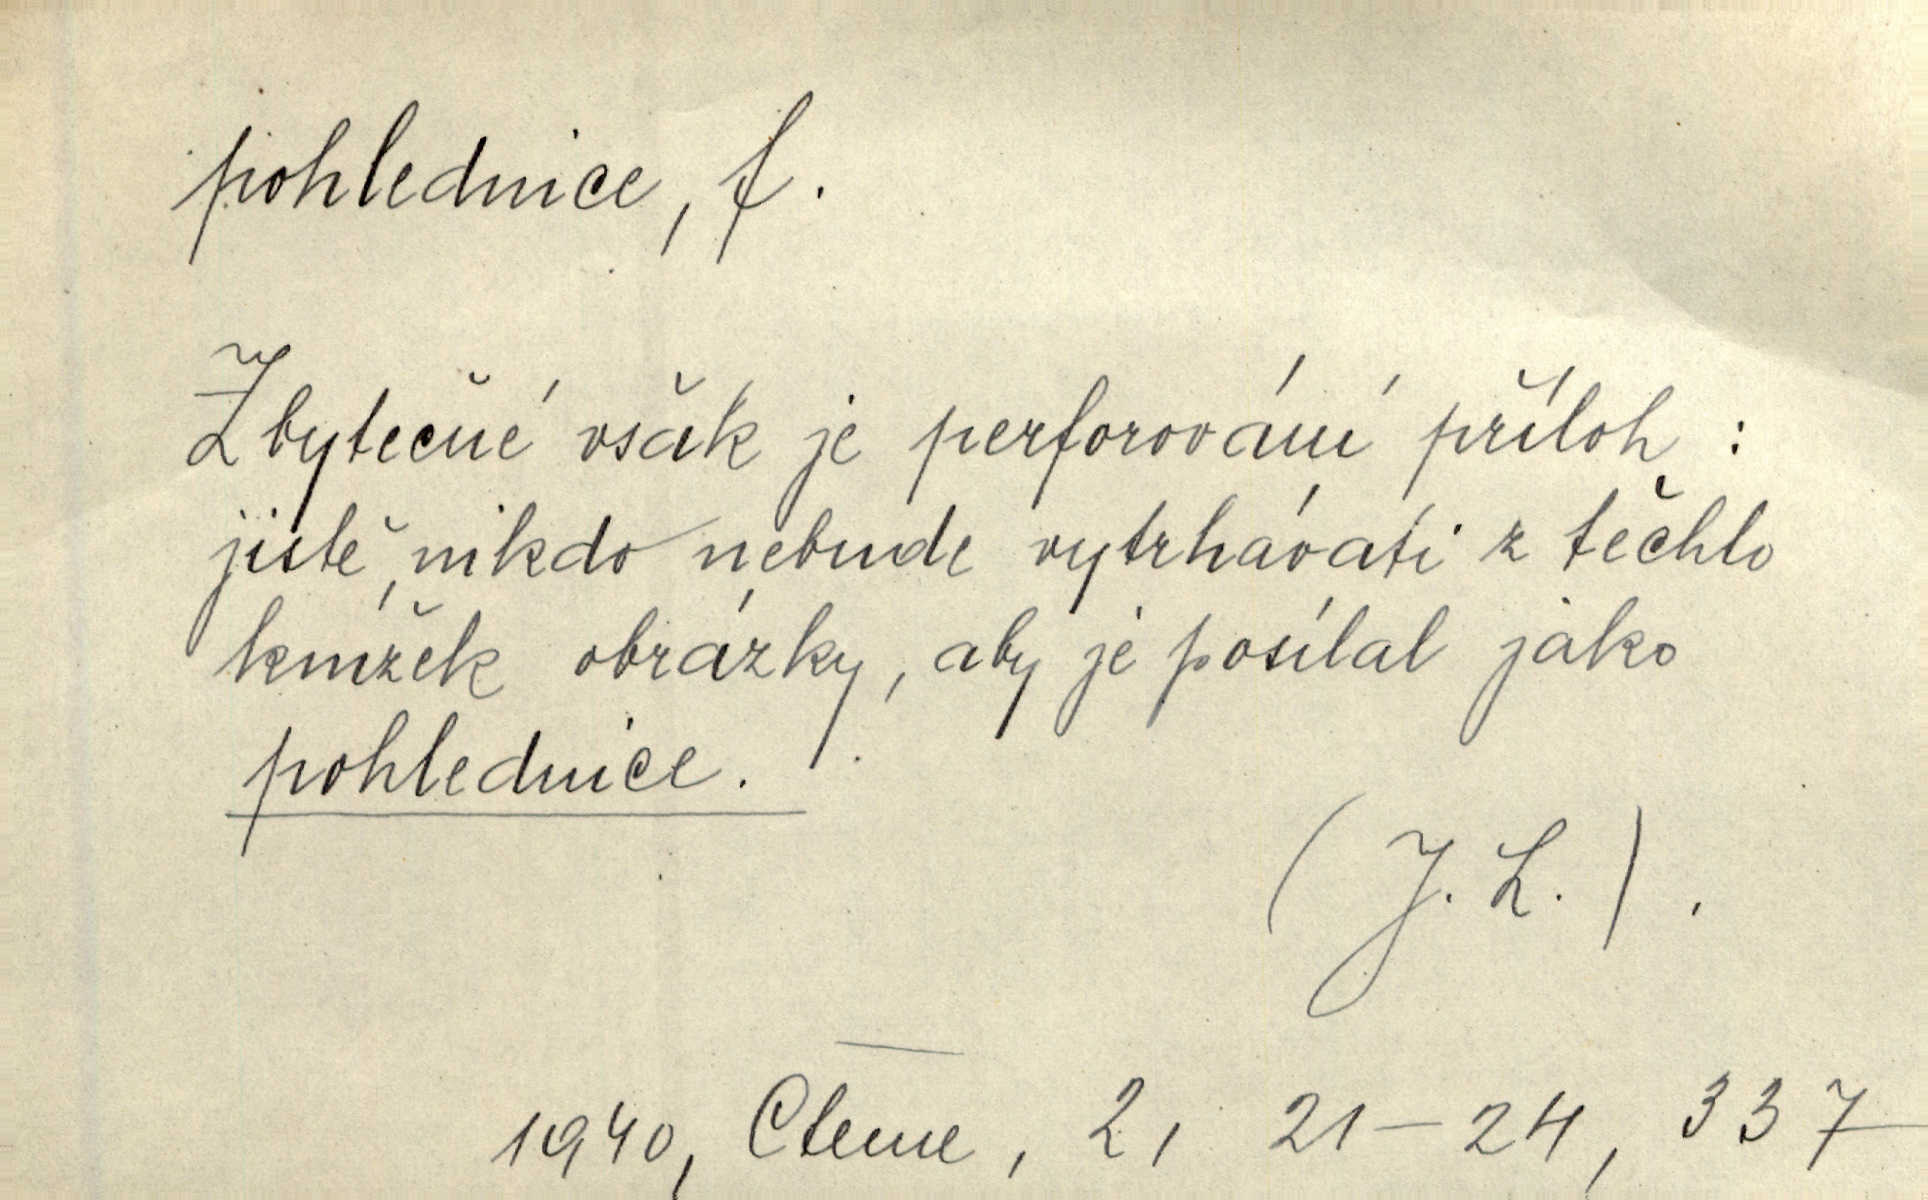 pohlednice, f.
Zbytečné však je perforování příloh :
jistě nikdo nebude vytrhávati z těchto
knížek obrázky, aby je posílal jako
pohlednice.
(J. L.).
1940, Čteme, 2, 21-24, 337